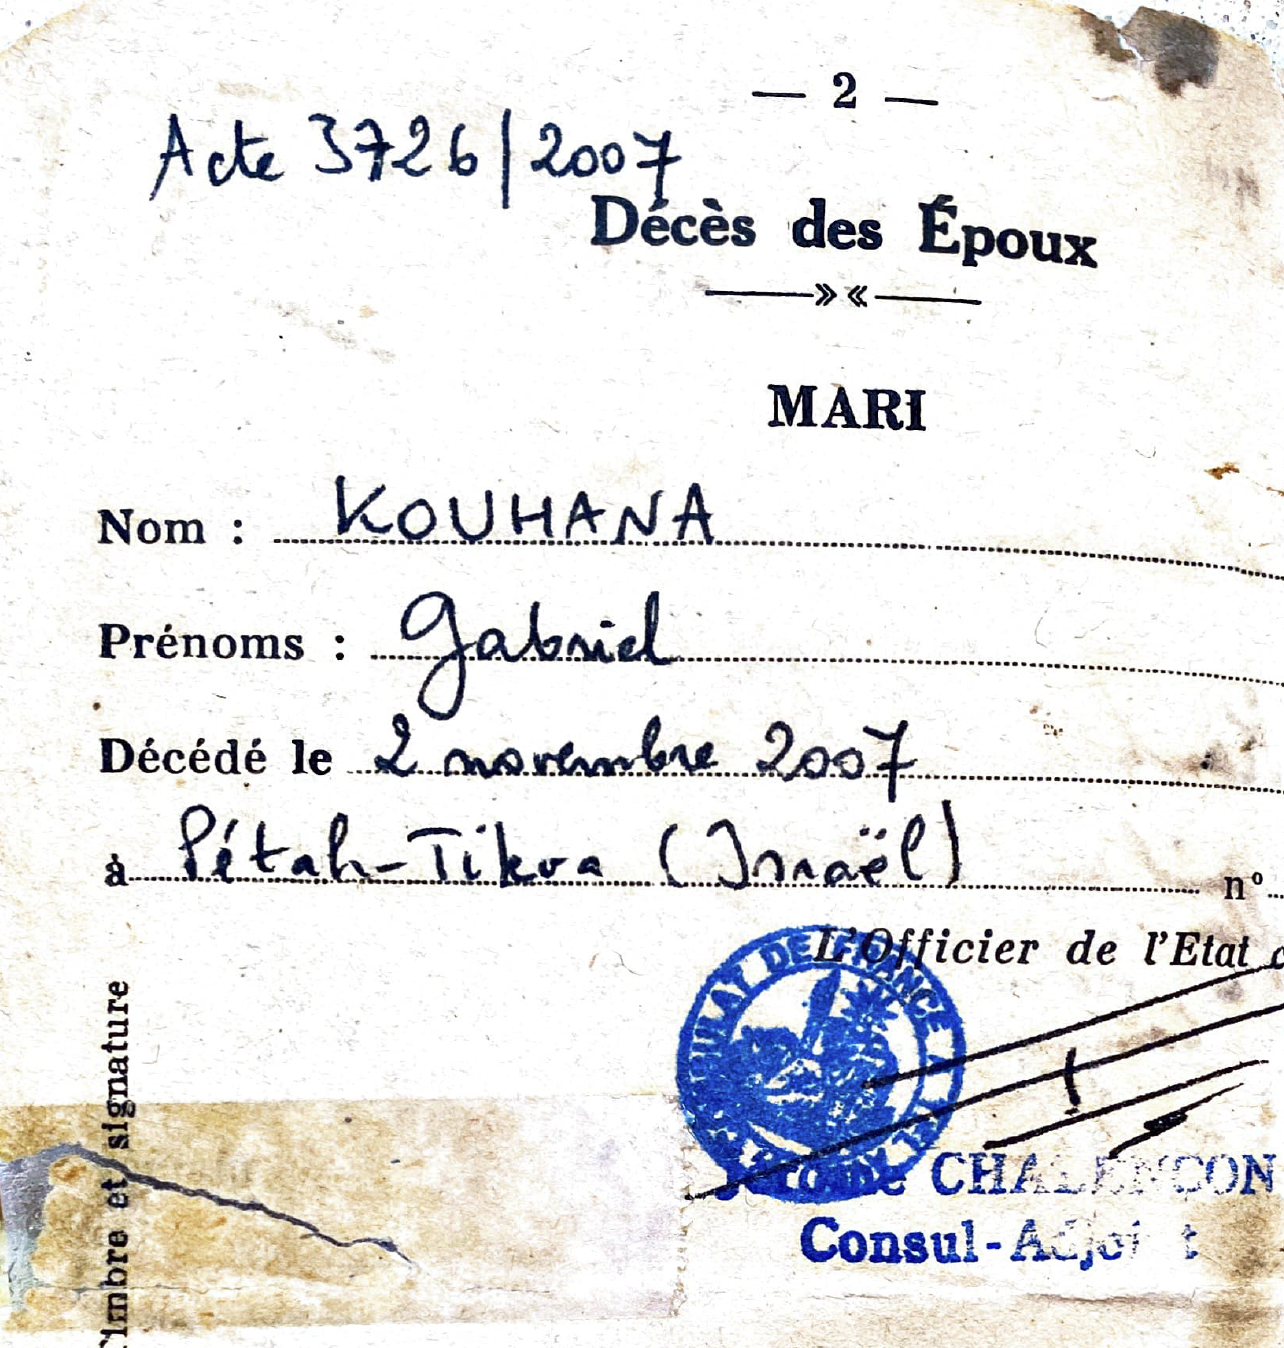 — 2 —
Acte 3726/2007
Décès des Époux
MARI
Nom : KOUHANA
Prénoms : Gabriel
Décédé le 2 novembre 2007
à Pétah-Tikva (Israël) n°
L'Officier de l'Etat
DE FRANCE À TEL
CHALENCON
Consul-Adjoint
Timbre et signature